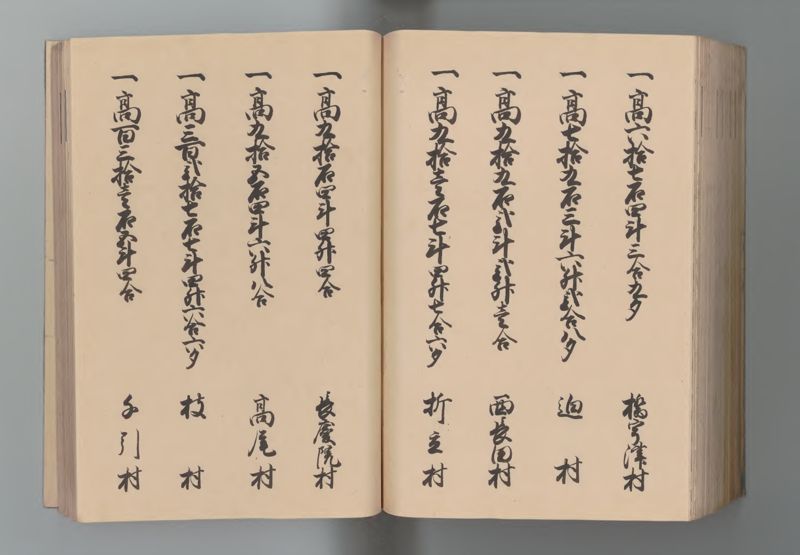 一高六拾七石四斗三合九夕 橋宇津村
一高七拾九石三斗六升弐合八夕 迫村
一高九拾九石弐斗弐升壱合 西長田村
一高九拾壱石七斗四升七合六夕 折立村
一高九拾石四斗四升四合 長慶院村
一高九拾五石四斗六升八合 高尾村
一高三百弐拾七石七斗四升六合六夕 枝村
一高百三拾壱石五斗四合 引村